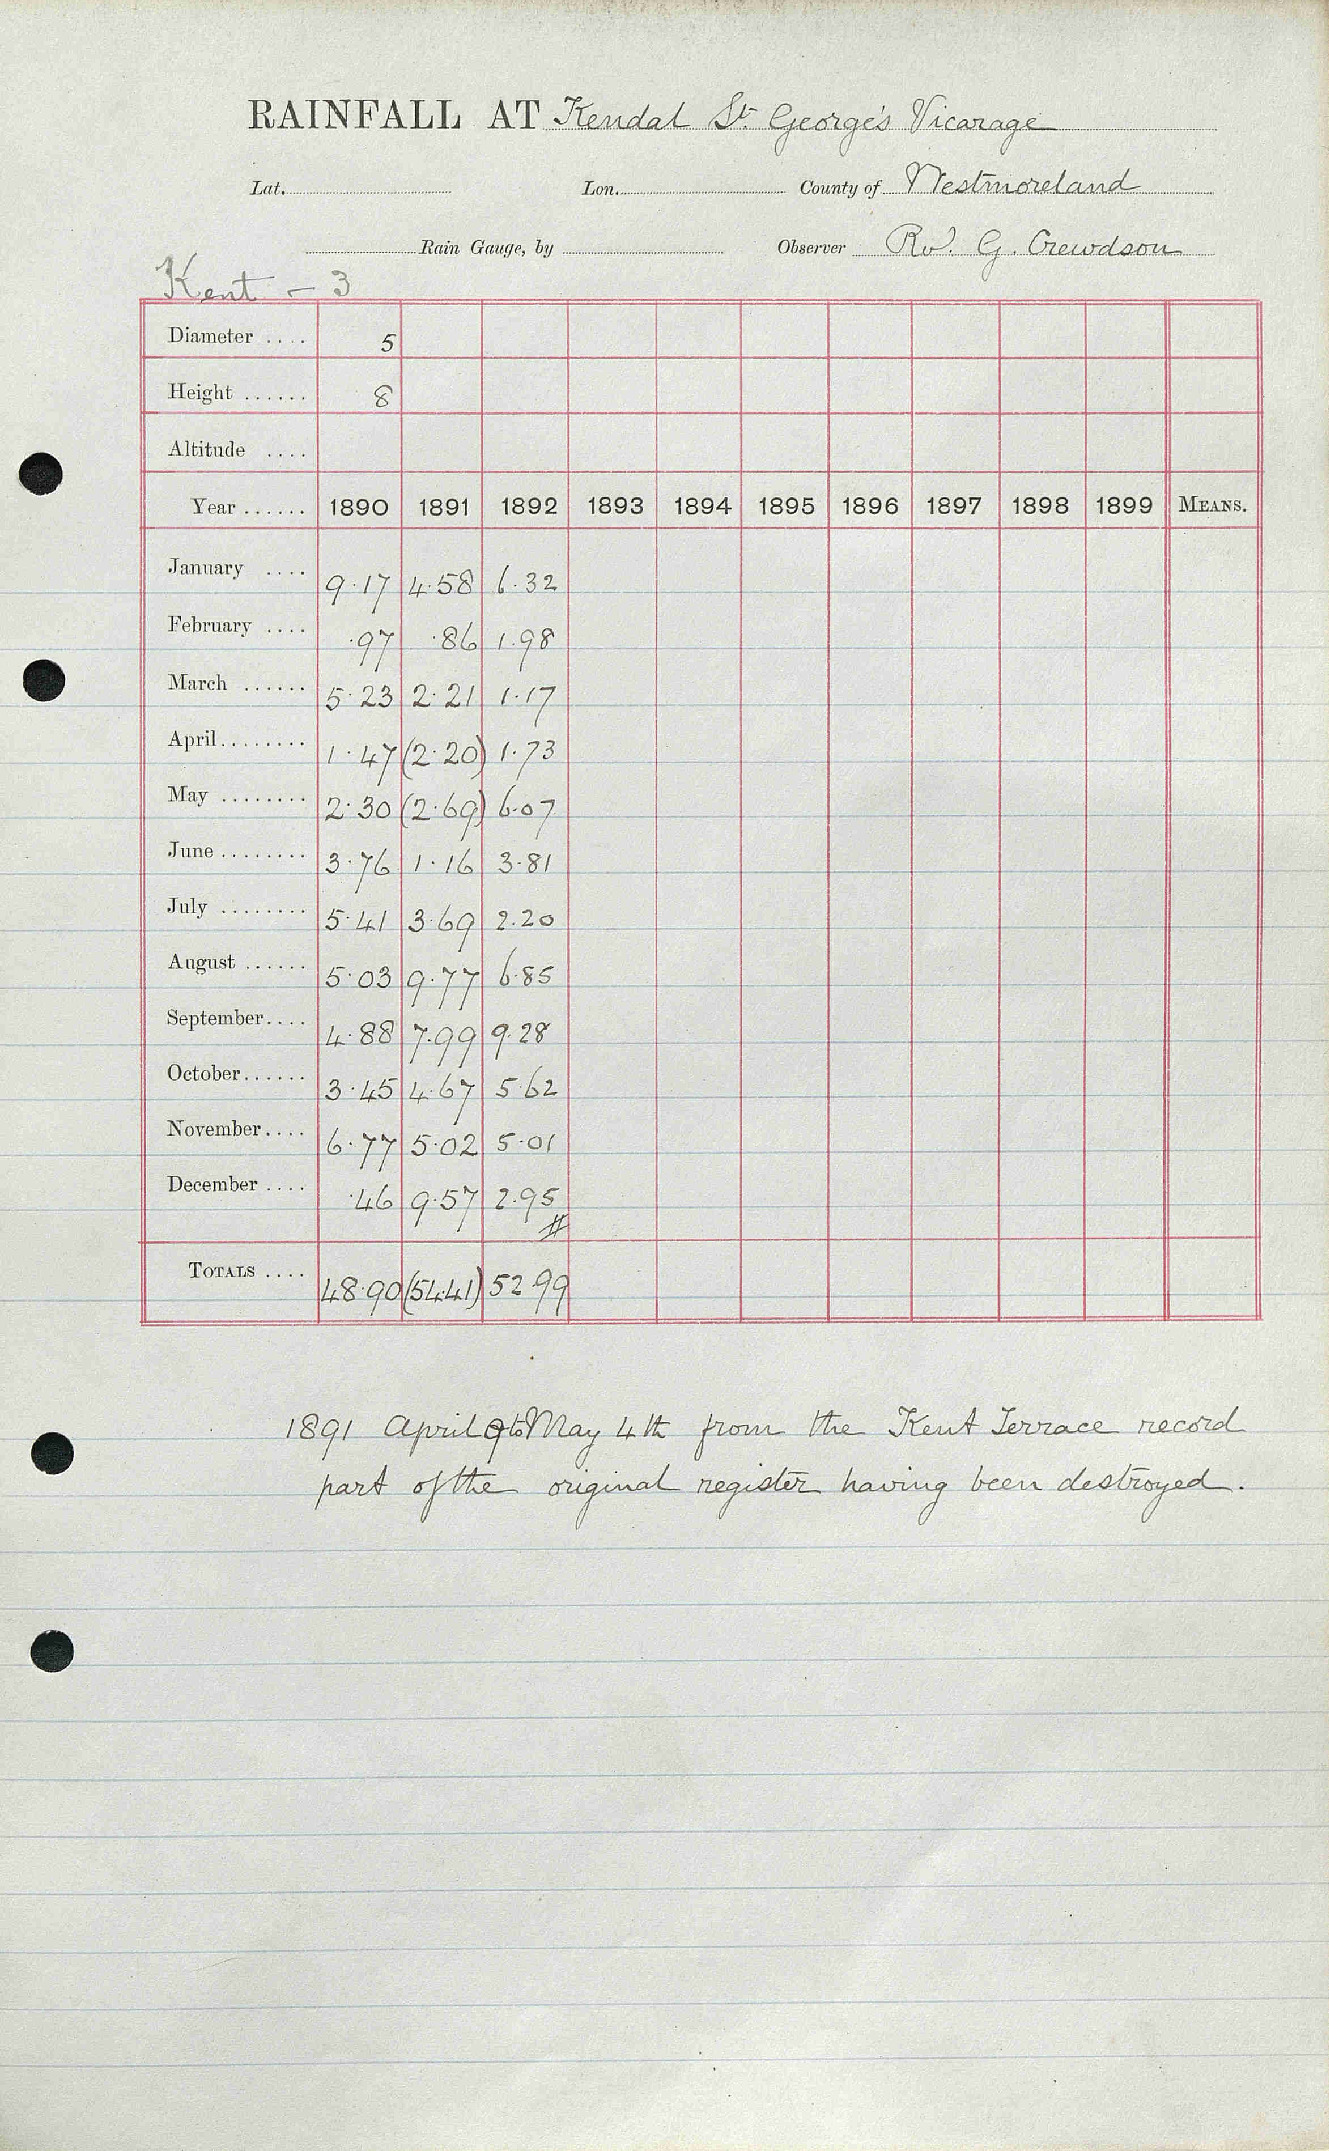 RAINFALL AT Kendal St. George's Vicarage
Lat. Lon. County of Westmoreland
Rain Gauge, by Observer Rev. G. Crewdson
Kent - 3
Diameter .... 5
Height ...... 8
Altitude ....
Year ...... 1890 1891 1892 1893 1894 1895 1896 1897 1898 1899 MEANS.
January .... 9.17 4.58 6.32
February .... .97 .86 1.98
March ...... 5.23 2.21 1.17
April........ 1.47 (2.20) 1.73
May ........ 2.30 (2.69) 6.07
June ........ 3.76 1.16 3.81
July ........ 5.41 3.69 2.20
August ...... 5.03 9.77 6.85
September.... 4.88 7.99 9.28
October...... 3.45 4.67 5.62
November.... 6.77 5.02 5.01
December .... .46 9.57 2.95
#
TOTALS .... 48.90 (54.41) 52.99
1891 April 9 to May 4th from the Kent Terrace record
part of the original register having been destroyed.